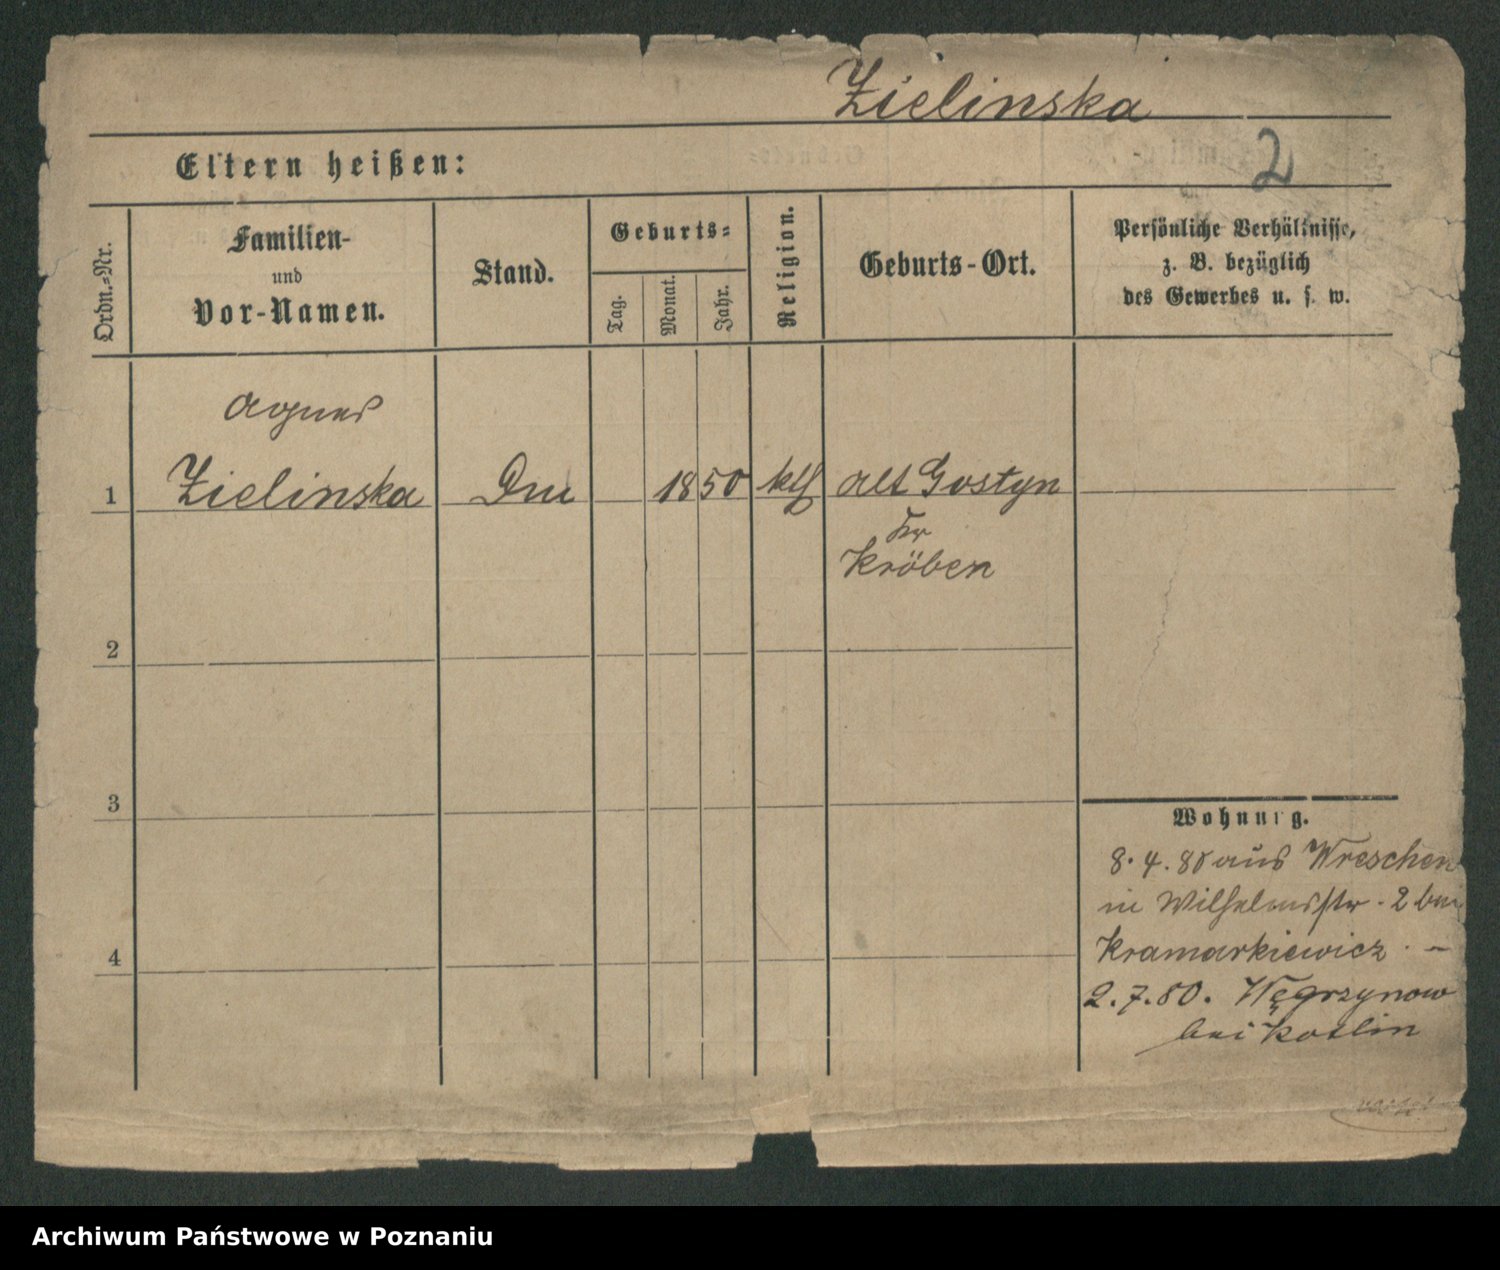 Zielinska
2
Eltern heißen:
Ordn.=Nr.
Familien-
und
Vor-Namen.
Stand.
Geburts=
Tag.
Monat.
Jahr.
Religion.
Geburts-Ort.
Persönliche Verhältnisse,
z. B. bezüglich
des Gewerbes u. s. w.
Agnes
1 Zielinska 1850 kth alt Gostyn
Kr
Kröben
2
3
4
Wohnung.
8.4.80 aus Wreschen
in Wilhelmsstr. 2 bei
Kramarkiewicz. —
2.7.80. Węgrzynow
bei Kotlin
Archiwum Państwowe w Poznaniu